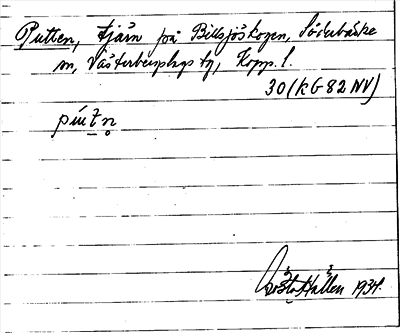 Putten, tjärn på Bitsjöskogen, Söderbärke
sn, Västerbergslags dg, Kopp. l.
30 (kG 82 NV)
pútn
Gösta Hallen 1934.